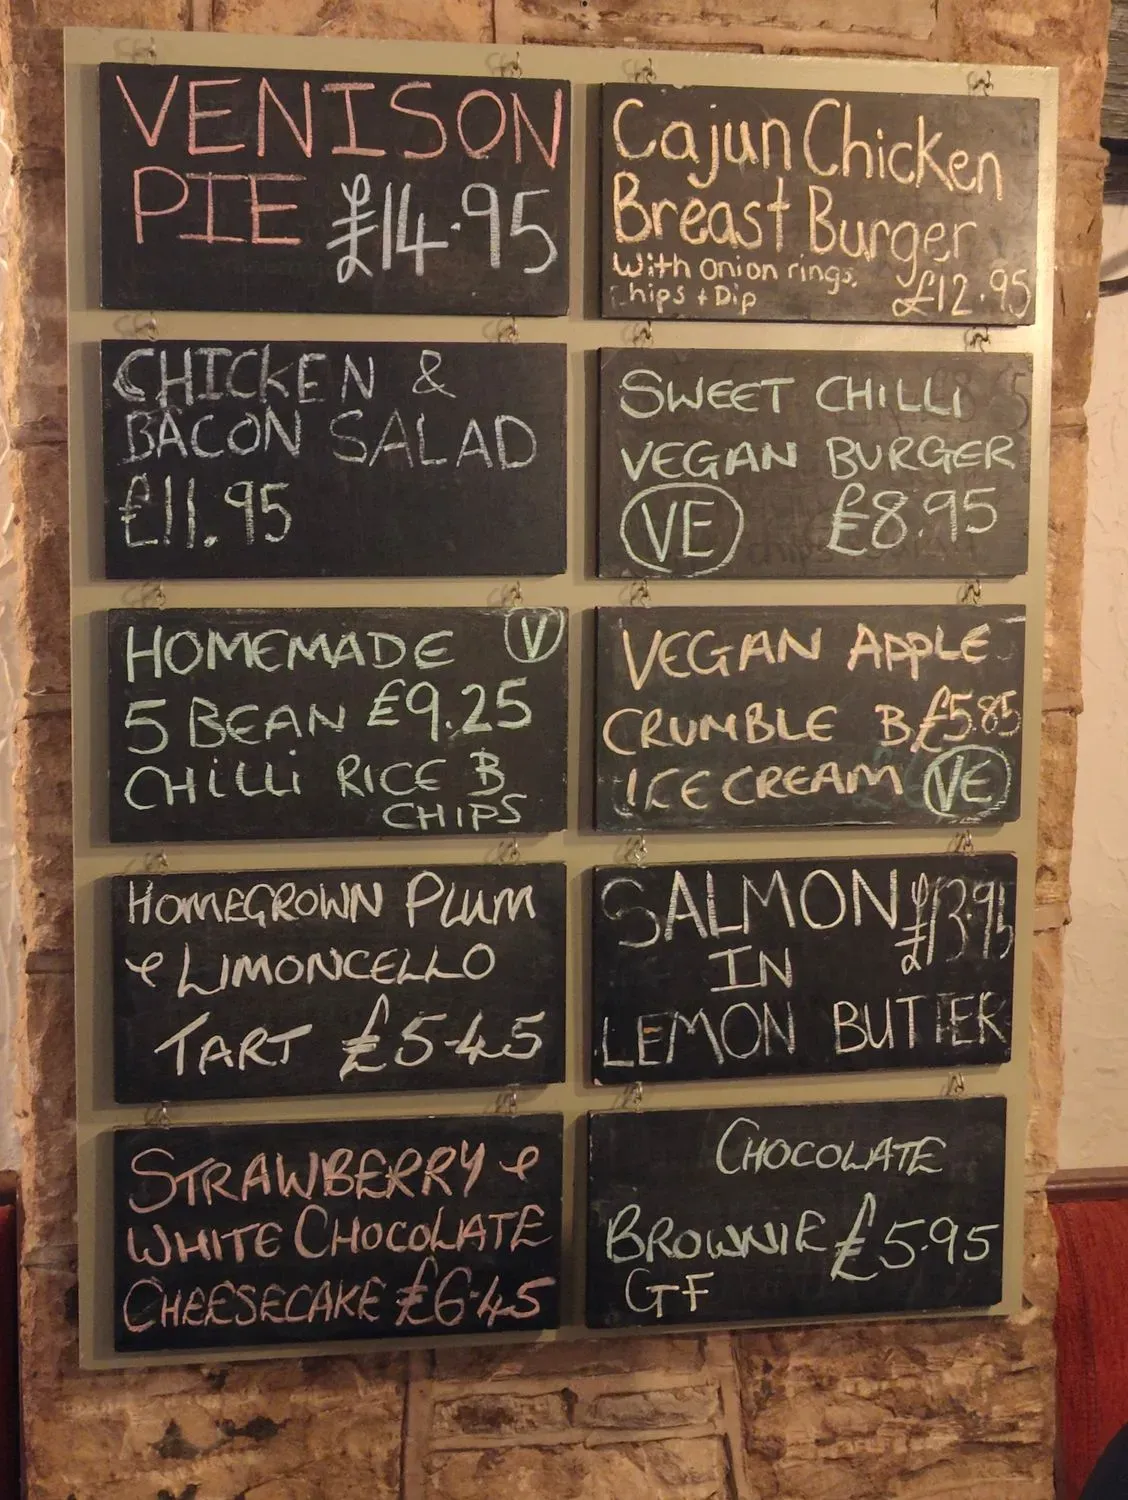 VENISON
PIE £14.95
CHICKEN &
BACON SALAD
£11.95
HOMEMADE V
5 BEAN £9.25
CHiLLi RICE B
CHIPS
HOMEGROWN PLUM
& LIMONCELLO
TART £5.45
STRAWBERRY &
WHITE CHOCOLATE
CHEESECAKE £6.45
Cajun Chicken
Breast Burger
With onion rings,
hips + Dip £12.95
SWEET CHILLI
VEGAN BURGER
VE £8.95
VEGAN APPLE
CRUMBLE B £5.85
ICE CREAM VE
SALMON £13.95
IN
LEMON BUTTER
CHOCOLATE
BROWNIE £5.95
GF